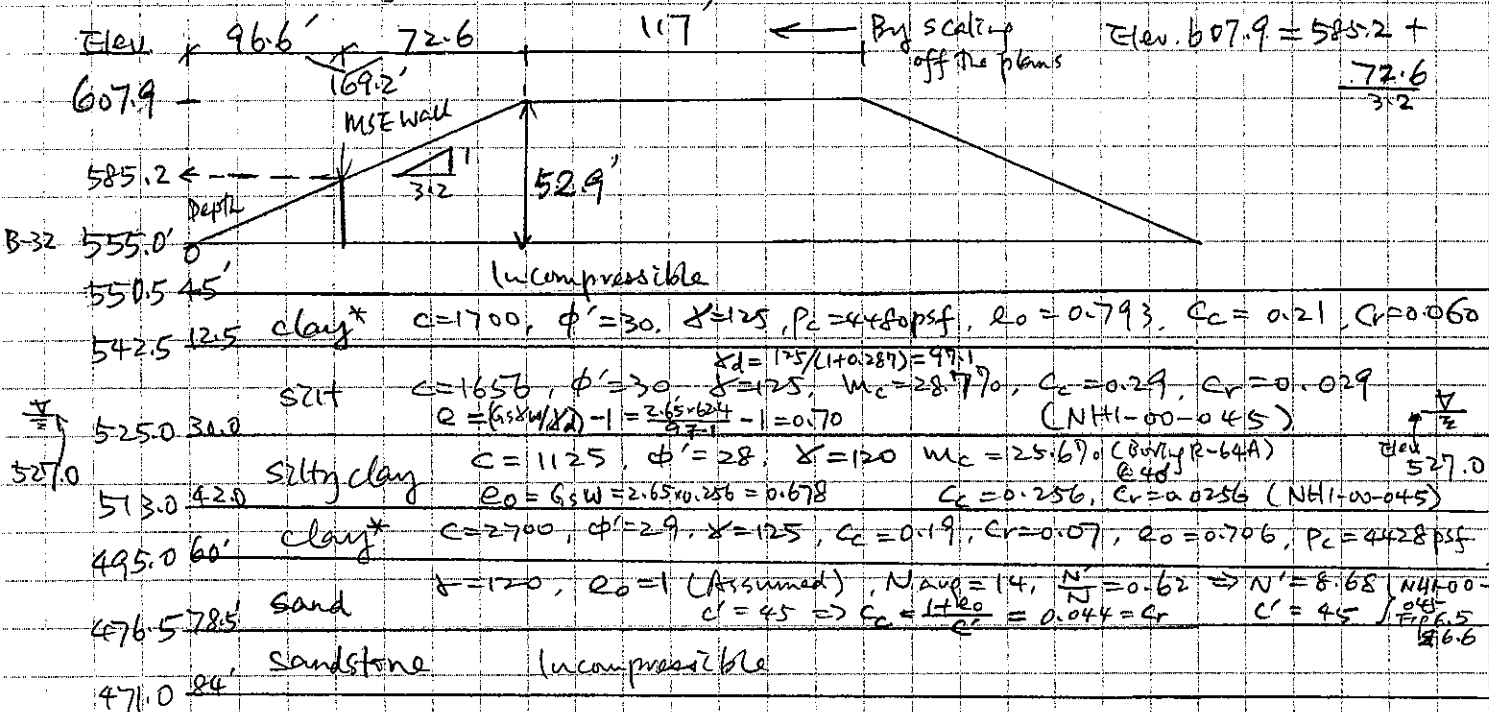 Elev. 96.6' 72.6 117' ← By scaling off the plans Elev. 607.9 = 585.2 + 72.6/3.2
169.2'
607.9
MSE Wall
585.2
1
3.2
52.9'
Depth
B-32 555.0' 0
Incompressible
550.5 4.5'
clay* c=1700, φ'=30, γ=125, Pc=4480psf, e0=0.793, Cc=0.21, Cr=0.060
542.5 12.5
γd=125/(1+0.287)=97.1
silt c=1656, φ'=30, γ=125, mc=28.7%, Cc=0.29, Cr=0.029
e=(Gsγw/γd)-1=2.65×62.4/97.1-1=0.70 (NHI-00-045)
525.0 30.0
527.0
silty clay c=1125, φ'=28, γ=120 mc=25.6% (Boring R-64A) @40' Elev 527.0
e0=Gsw=2.65×0.256=0.678 Cc=0.256, Cr=0.0256 (NHI-00-045)
513.0 42.0
clay* c=2700, φ'=29, γ=125, Cc=0.19, Cr=0.07, e0=0.706, Pc=4428psf
495.0 60'
sand γ=120, e0=1 (Assumed), Navg=14, N'/N=0.62 ⇒ N'=8.68 NHI-00-045
C'=45 ⇒ Cc=1+e0/C'=0.044=Cr C'=45 Fig 6.5 & 6.6
476.5 78.5'
sandstone Incompressible
471.0 84'